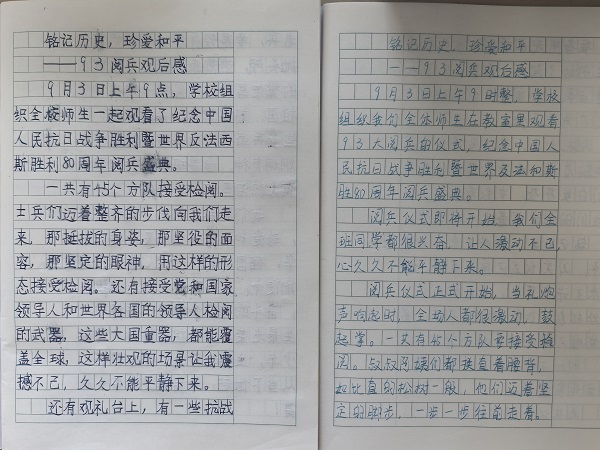 铭记历史，珍爱和平
——93阅兵观后感
9月3日上午9点，学校组
织全校师生一起观看了纪念中国
人民抗日战争胜利暨世界反法西
斯胜利80周年阅兵盛典。
一共有45个方队接受检阅。
士兵们迈着整齐的步伐向我们走
来，那挺拔的身姿，那坚毅的面
容，那坚定的眼神，用这样的形
态接受检阅。还有接受党和国家
领导人和世界各国的领导人检阅
的武器，这些大国重器，都能覆
盖全球，这样壮观的场景让我震
撼不已，久久不能平静下来。
还有观礼台上，有一些抗战
铭记历史，珍爱和平
——93阅兵观后感
9月3日上午9时整，学校
组织我们全体师生在教室里观看
93大阅兵的仪式，纪念中国人
民抗日战争胜利暨世界反法和斯
胜80周年阅兵盛典。
阅兵仪式即将开始，我们全
班同学都很兴奋，让人激动不已
心久久不能平静下来。
阅兵仪式正式开始，当礼炮
声响起时，全场人都很激动，鼓
起掌。一共有45个方队要接受检
阅。叔叔阿姨们都挺直着腰背，
如比直的松树一般，他们迈着坚
定的脚步，一步一步往前走着。